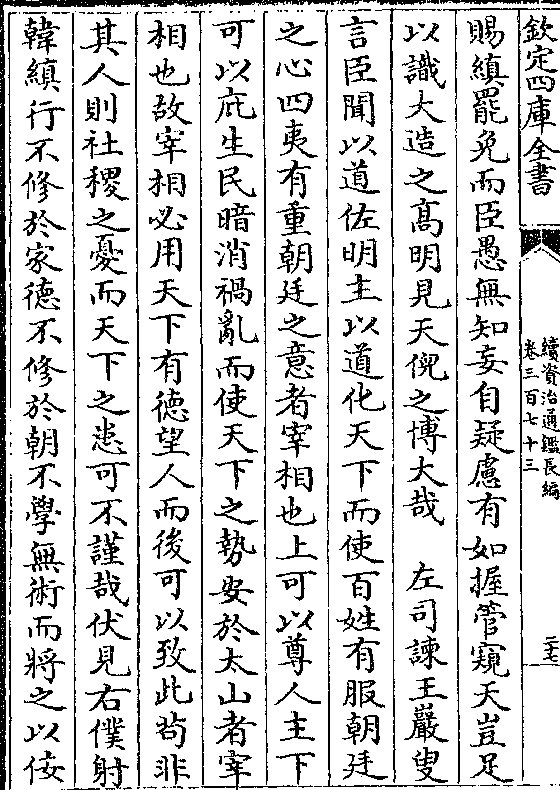 欽定四庫全書
續資治通鑑長編
卷三百七十三
二十七
賜縝罷免而臣愚無知妄自疑慮有如握管窺天豈足
以識大造之髙明見天倪之博大哉　左司諫王巖叟
言臣聞以道佐明主以道化天下而使百姓有服朝廷
之心四夷有重朝廷之意者宰相也上可以尊人主下
可以庇生民暗消禍亂而使天下之勢安於太山者宰
相也故宰相必用天下有德望人而後可以致此苟非
其人則社稷之憂而天下之患可不謹哉伏見右僕射
韓縝行不修於家德不修於朝不學無術而將之以佞